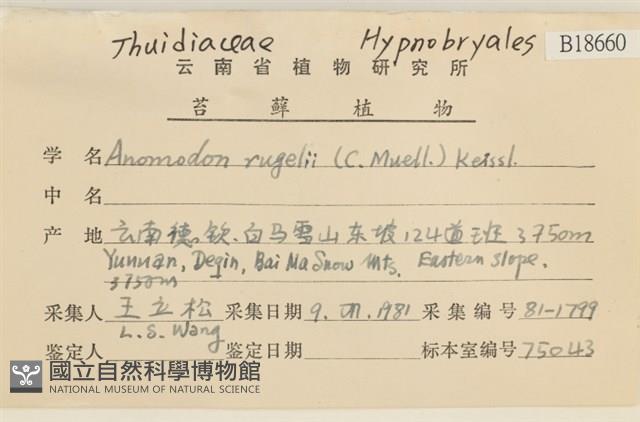 Thuidiaceae Hypnobryales B18660
云南省植物研究所
苔藓植物
学名 Anomodon rugelii (C. Muell.) Keissl.
中名
产地 云南德钦.白马雪山东坡124道班 3750m
Yunnan, Deqin, Bai Ma Snow Mts. Eastern slope.
3750m
采集人 王立松 采集日期 9. VII. 1981 采集编号 81-1799
L.S. Wang
鉴定人 鉴定日期 标本室编号 75043
國立自然科學博物館
NATIONAL MUSEUM OF NATURAL SCIENCE